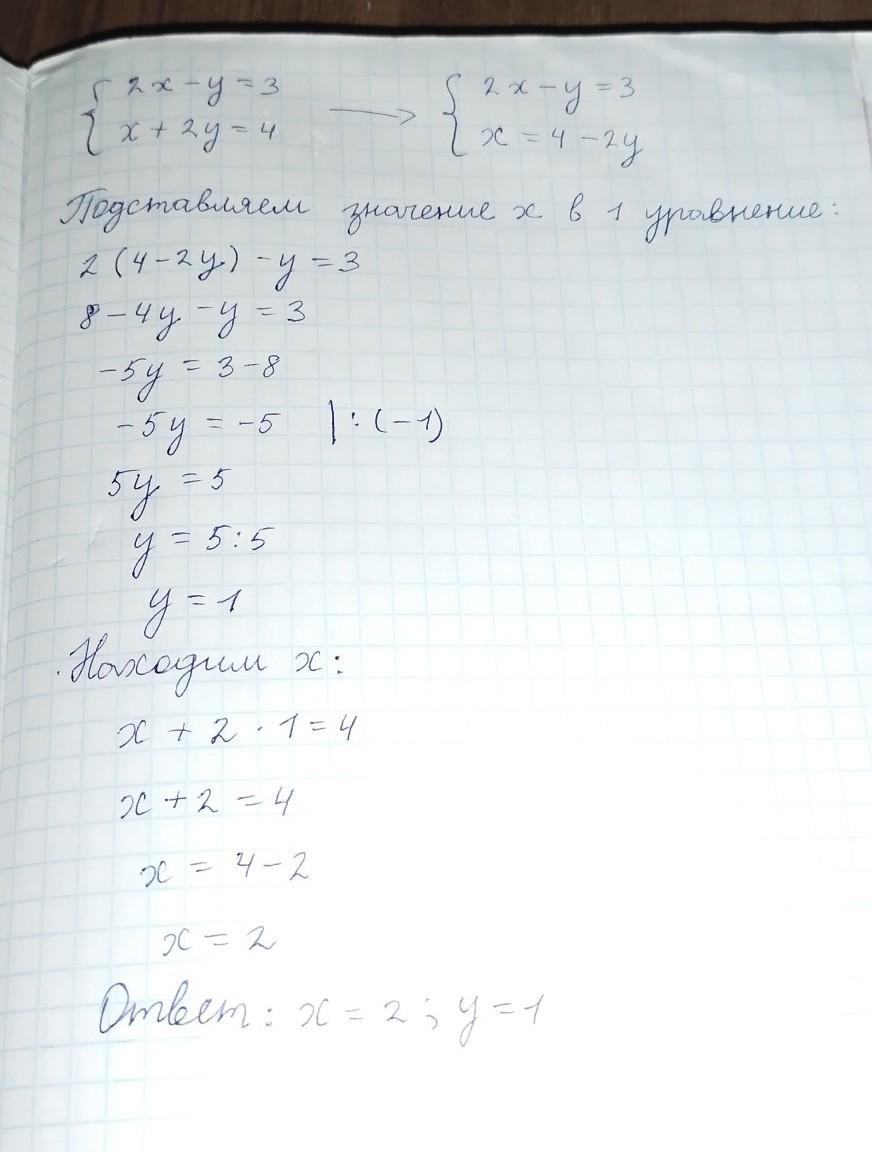 { 2x - y = 3 → { 2x - y = 3
x + 2y = 4 x = 4 - 2y
Подставляем значение x в 1 уравнение:
2(4-2y) - y = 3
8 - 4y - y = 3
-5y = 3-8
-5y = -5 |:(-1)
5y = 5
y = 5:5
y = 1
Находим x:
x + 2 · 1 = 4
x + 2 = 4
x = 4 - 2
x = 2
Ответ: x = 2; y = 1